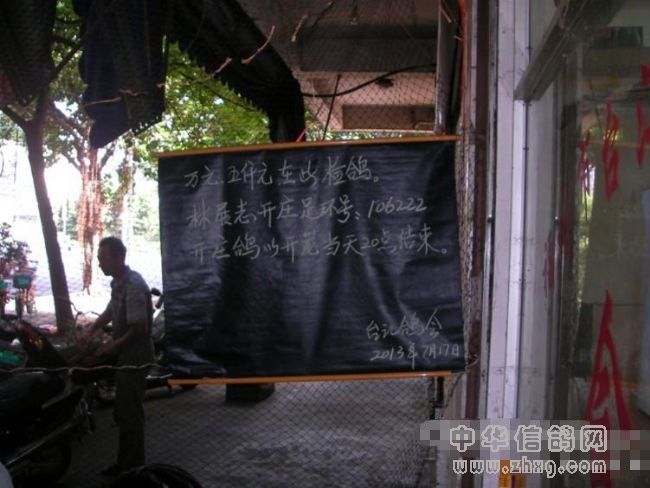 万元、五仟元在此检鸽。
林展志、开庄足环号:106222
开庄鸽以开笼当天20点结束。
台记鸽会
2013年7月17日
中华信鸽网
www.zhxg.com